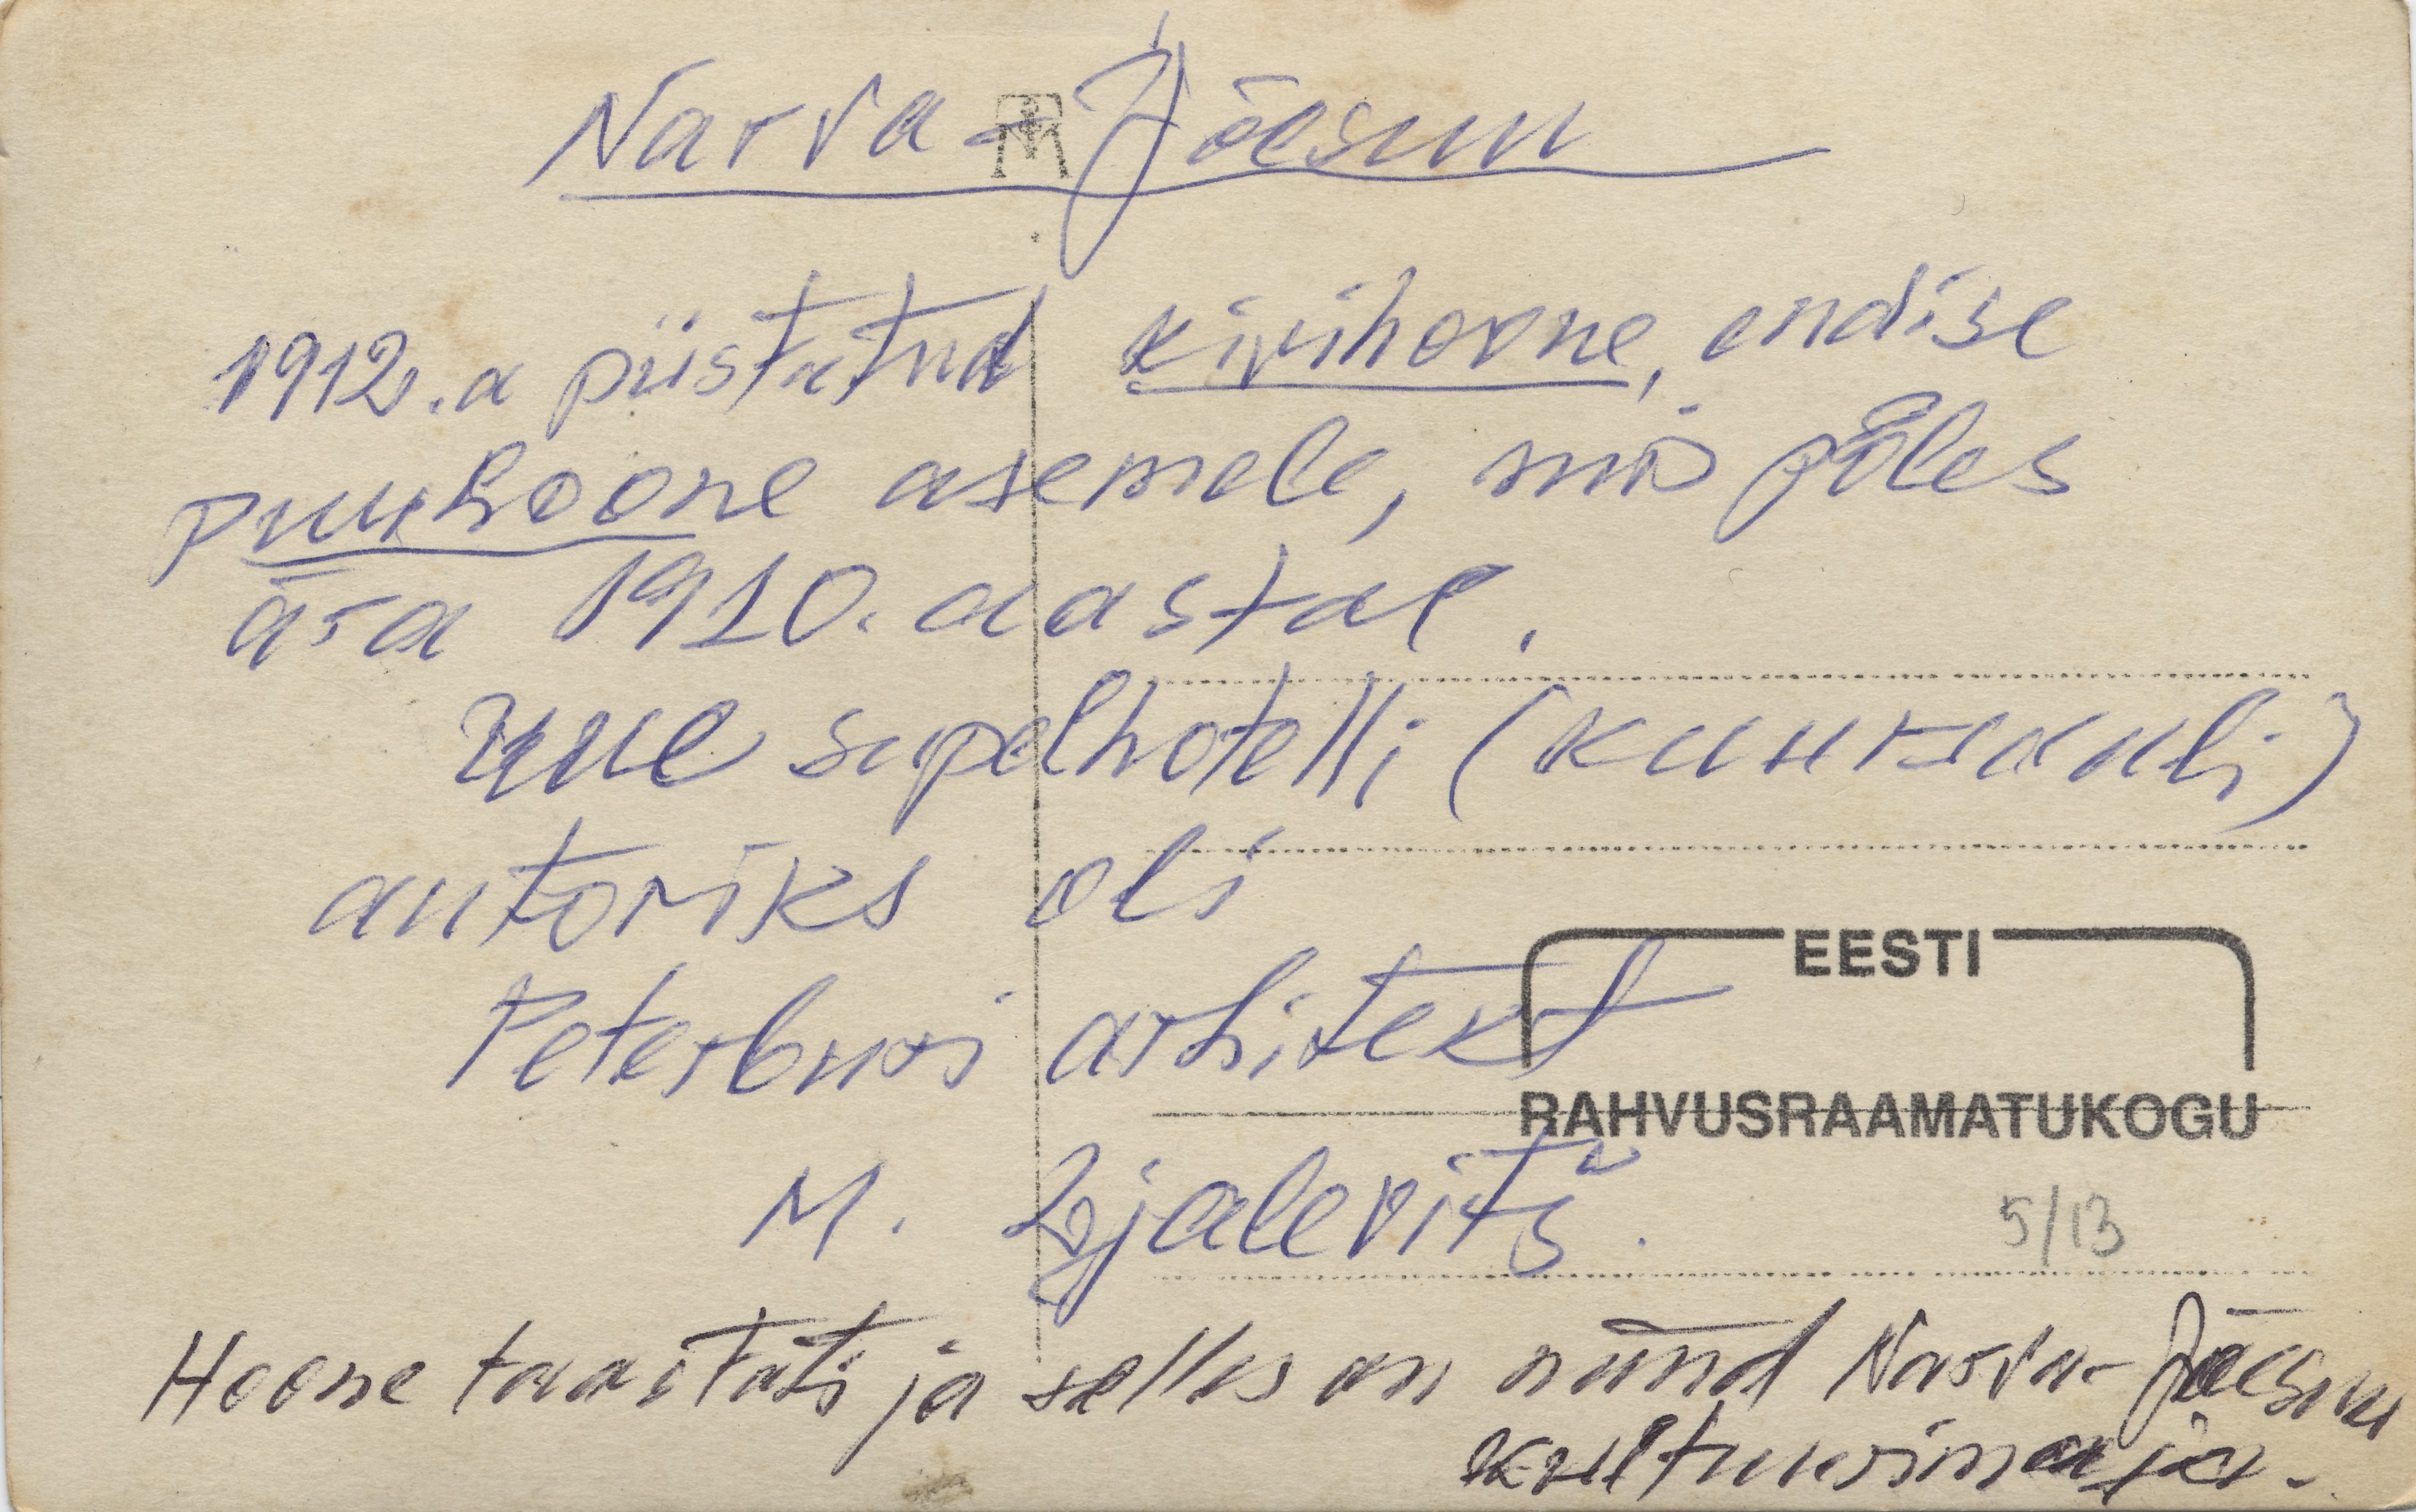 Narva-Jõesuu
1912. a püstitatud kivihoone, endise
puuhoone asemele, mis põles
ära 1910. aastal.
uue supelhotelli (kuursauli)
autoriks oli
Peterburi arhitekt
EESTI
RAHVUSRAAMATUKOGU
M. Ljalevitš.
5/13
Hoone taastati ja selles on nüüd Narva-Jõesuu
kultuurimaja.